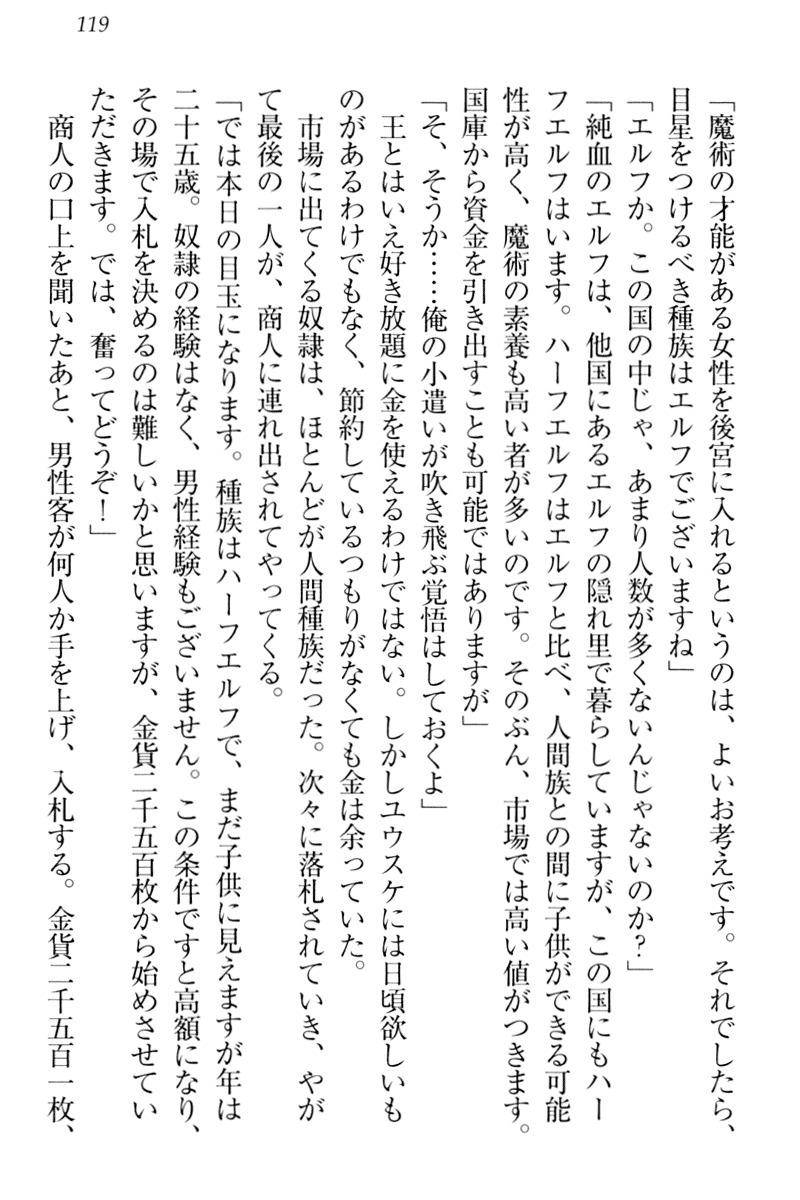 119
「魔術の才能がある女性を後宮に入れるというのは、よいお考えです。それでしたら、
目星をつけるべき種族はエルフでございますね」
「エルフか。この国の中じゃ、あまり人数が多くないんじゃないのか？」
「純血のエルフは、他国にあるエルフの隠れ里で暮らしていますが、この国にもハー
フエルフはいます。ハーフエルフはエルフと比べ、人間族との間に子供ができる可能
性が高く、魔術の素養も高い者が多いのです。そのぶん、市場では高い値がつきます。
国庫から資金を引き出すことも可能ではありますが」
「そ、そうか……俺の小遣いが吹き飛ぶ覚悟はしておくよ」
王とはいえ好き放題に金を使えるわけではない。しかしユウスケには日頃欲しいも
のがあるわけでもなく、節約しているつもりがなくても金は余っていた。
市場に出てくる奴隷は、ほとんどが人間種族だった。次々に落札されていき、やが
て最後の一人が、商人に連れ出されてやってくる。
「では本日の目玉になります。種族はハーフエルフで、まだ子供に見えますが年は
二十五歳。奴隷の経験はなく、男性経験もございません。この条件ですと高額になり、
その場で入札を決めるのは難しいかと思いますが、金貨二千五百枚から始めさせてい
ただきます。では、奮ってどうぞ！」
商人の口上を聞いたあと、男性客が何人か手を上げ、入札する。金貨二千五百一枚、